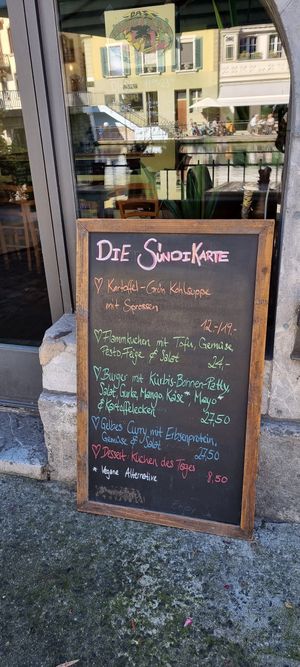 DIE SÜNDIKARTE
♡ Kartoffel-Grün Kohlsuppe
mit Sprossen
12.-/19.-
♡ Flammkuchen mit Tofu, Gemüse,
Pesto, Feige & Salat
24,-
♡ Burger mit Kürbis-Bohnen-Patty,
Salat, Gurke, Mango, Käse*, Mayo*
& Kartoffelecken
27,50
♡ Gelbes Curry mit Erbsenprotein,
Gemüse & Salat
27,50
♡ Dessert Kuchen des Tages
8,50
* Vegane Alternative